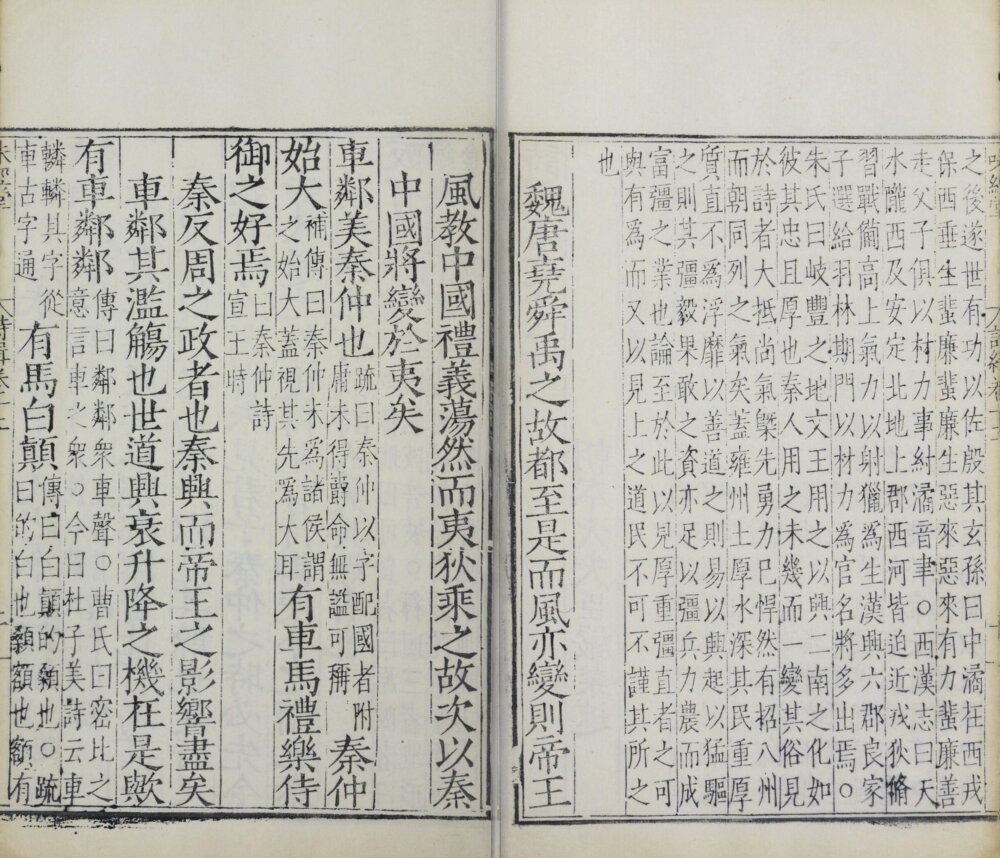 之後遂世有功以佐殷其玄孫曰中潏在西戎
保西垂生蜚廉蜚廉生惡來惡來有力蜚廉善
走父子俱以材力事紂潏音聿○西漢志曰天
水隴西及安定北地上郡西河皆迫近戎狄脩
習戰備高上氣力以射獵爲生漢興六郡良家
子選給羽林期門以材力爲官名將多出焉○
朱氏曰岐豐之地文王用之以興二南之化如
彼其忠且厚也秦人用之未幾而一變其俗見
於詩者大抵尚氣槩先勇力已悍然有招八州
而朝同列之氣矣蓋雍州土厚水深其民重厚
質直不爲浮靡以善道之則易以興起以猛驅
之則其彊毅果敢之資亦足以彊兵力農而成
富彊之業也論至於此以見厚重彊直者之可
與有爲而又以見上之道民不可不謹其所之
也
魏唐堯舜禹之故都至是而風亦變則帝王
風教中國禮義蕩然而夷狄乘之故次以秦
中國將變於夷矣
車鄰美秦仲也疏曰秦仲以字配國者附庸未得爵命無謚可稱秦仲
始大補傳曰秦仲未爲諸侯謂之始大蓋視其先爲大耳有車馬禮樂侍
御之好焉曰秦仲詩宣王時
秦反周之政者也秦興而帝王之影響盡矣
車鄰其濫觴也世道興衰升降之機在是歟
有車鄰鄰傳曰鄰鄰衆車聲○曹氏曰密比之意言車之衆○今曰杜子美詩云車
轔轔其字從車古字通有馬白顛傳曰白顛的顙也○疏曰的白也顙額也額有